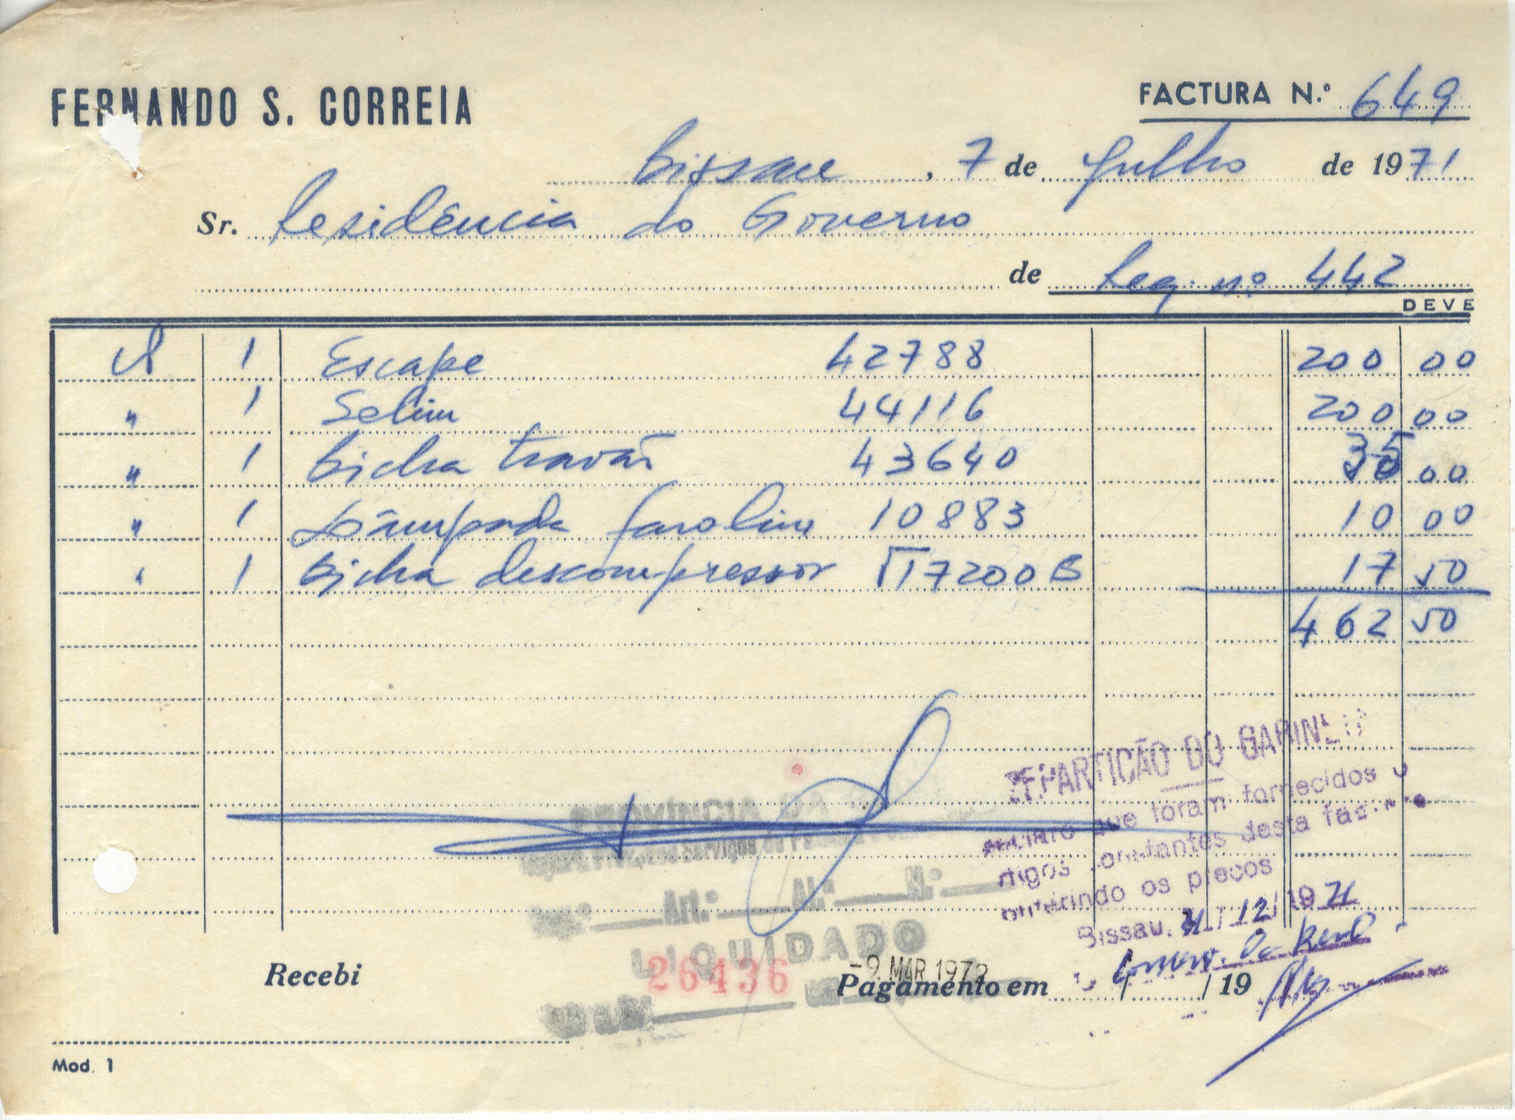 FERNANDO S. CORREIA
FACTURA N.º 649
Bissau, 7 de Julho de 1971
Sr. Residência do Governo
de Req. nº 442
DEVE
1 Escape 42788 200 00
" 1 Selim 44116 200 00
" 1 Bicha travão 43640 35 00
" 1 Lâmpada farolim 10883 10 00
" 1 Bicha descompressor 17200B 17 50
462 50
PROVÍNCIA DA
REPARTIÇÃO DO GABINETE
que foram fornecidos
constantes desta
os preços
Bissau, 31/12/1971
Art.º
N.º
LIQUIDADO
26436
-9 MAR 1972
Recebi
Pagamento em / / 19
Mod. 1